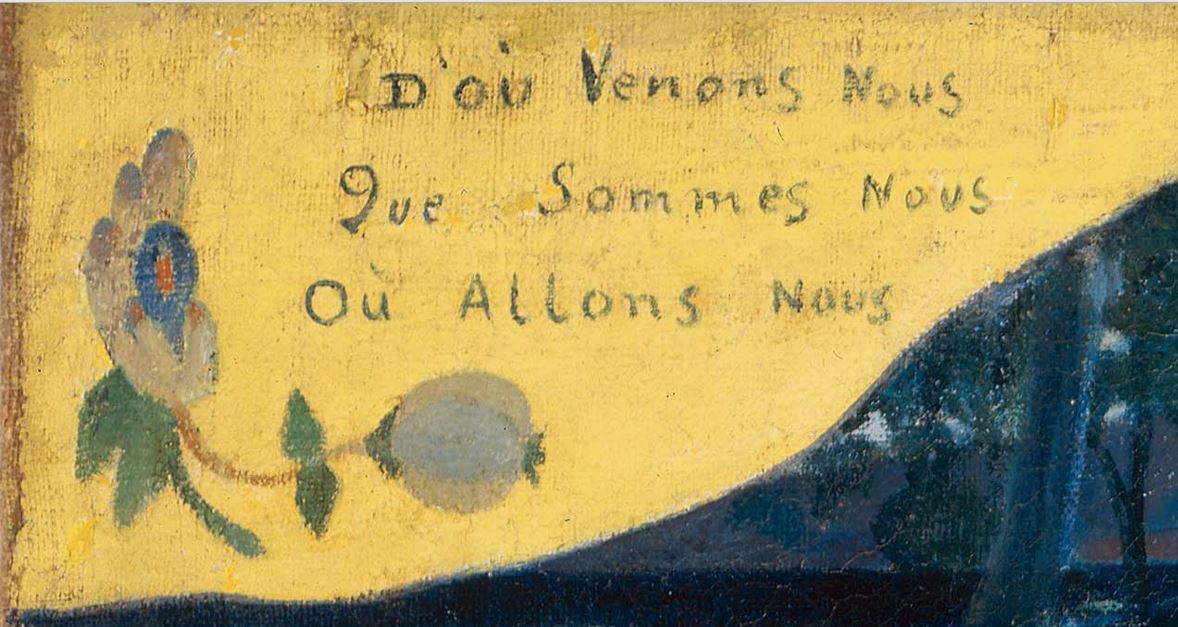 D'où Venons Nous
Que Sommes Nous
Où Allons Nous